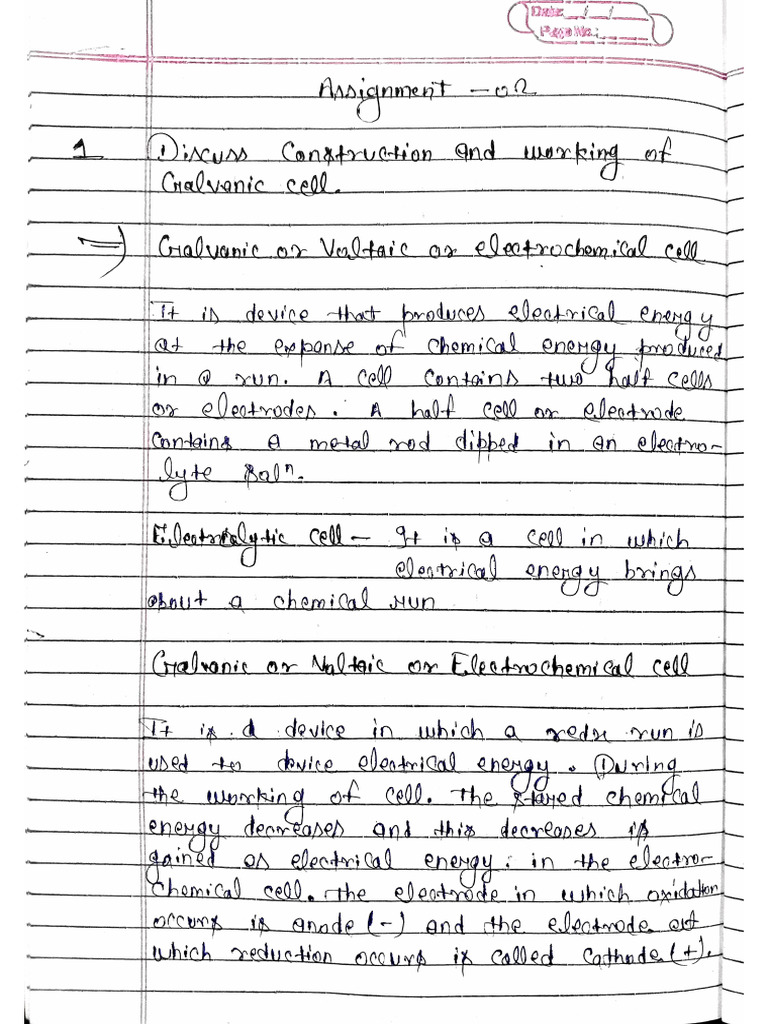 Date: __/__/__
Page No.:
Assignment - 02
1 Discuss Construction and working of
Galvanic cell.
⇒ Galvanic or Voltaic or electrochemical cell
It is device that produces electrical energy
at the expanse of chemical energy produced
in a rxn. A cell contains two half cells
or electrodes. A half cell or electrode
contains a metal rod dipped in an electro-
lyte salⁿ.
Electrolytic cell - It is a cell in which
electrical energy brings
about a chemical rxn
Galvanic or Voltaic or Electrochemical cell
It is a device in which a redx rxn is
used to device electrical energy. During
the working of cell. The stored chemical
energy decreases and this decreases is
gained as electrical energy. in the electro-
chemical cell. The electrode in which oxidation
occurs is anode (-) and the electrode at
which reduction occurs is called cathode (+).